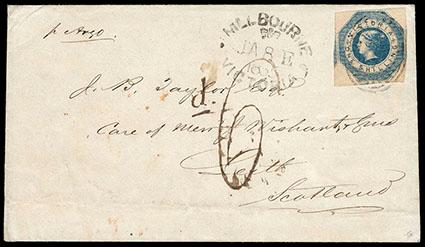 p Argo.
MELBOURNE
JA 8 E
VICTORIA
VICTORIA
ONE SHILLING
J. B. Taylor Esq
Care of Messrs Wishart & Sons
Leith
Scotland